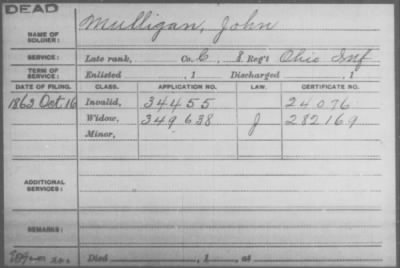 DEAD
NAME OF SOLDIER: Mulligan, John
SERVICE: Late rank, Co. C, 8 Reg't Ohio Inf
TERM OF SERVICE: Enlisted , 1 Discharged , 1
DATE OF FILING. CLASS. APPLICATION NO. LAW. CERTIFICATE NO.
1862 Oct. 16 Invalid, 34455 24076
Widow, 349638 J 282169
Minor,
ADDITIONAL SERVICES:
REMARKS:
Died , 1 , at